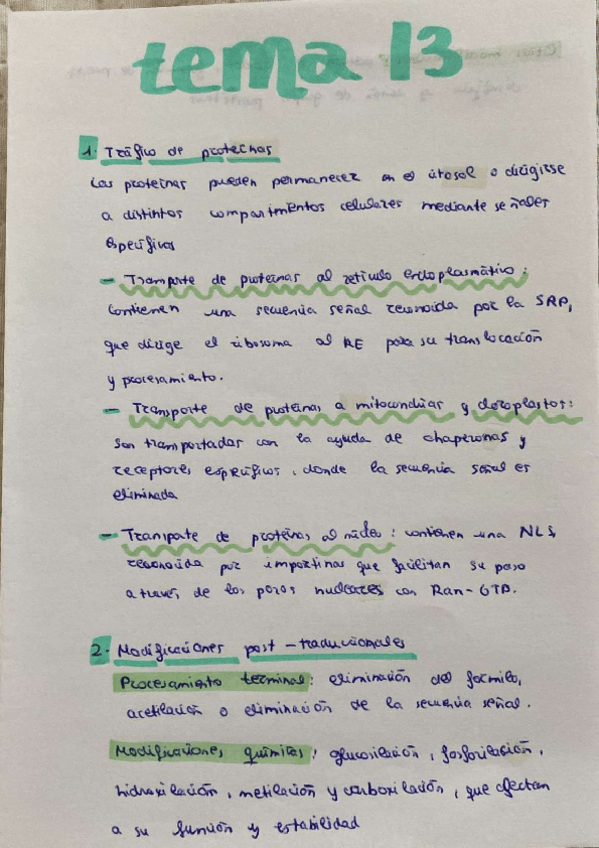 tema 13
1. Tráfico de proteínas
Las proteínas pueden permanecer en el citosol o dirigirse
a distintos compartimentos celulares mediante señales
específicas
- Transporte de proteínas al retículo endoplasmático:
Contienen una secuencia señal reconocida por la SRP,
que dirige el ribosoma al RE para su translocación
y procesamiento.
- Transporte de proteínas a mitocondrias y cloroplastos:
son transportadas con la ayuda de chaperonas y
receptores específicos, donde la secuencia señal es
eliminada
- Transporte de proteínas al núcleo: contienen una NLS,
reconocida por importinas que facilitan su paso
a través de los poros nucleares con Ran-GTP.
2. Modificaciones post-traduccionales
Procesamiento terminal: eliminación del formilo,
acetilación o eliminación de la secuencia señal.
Modificaciones químicas: glucosilación, fosforilación,
hidroxilación, metilación y carboxilación, que afectan
a su función y estabilidad